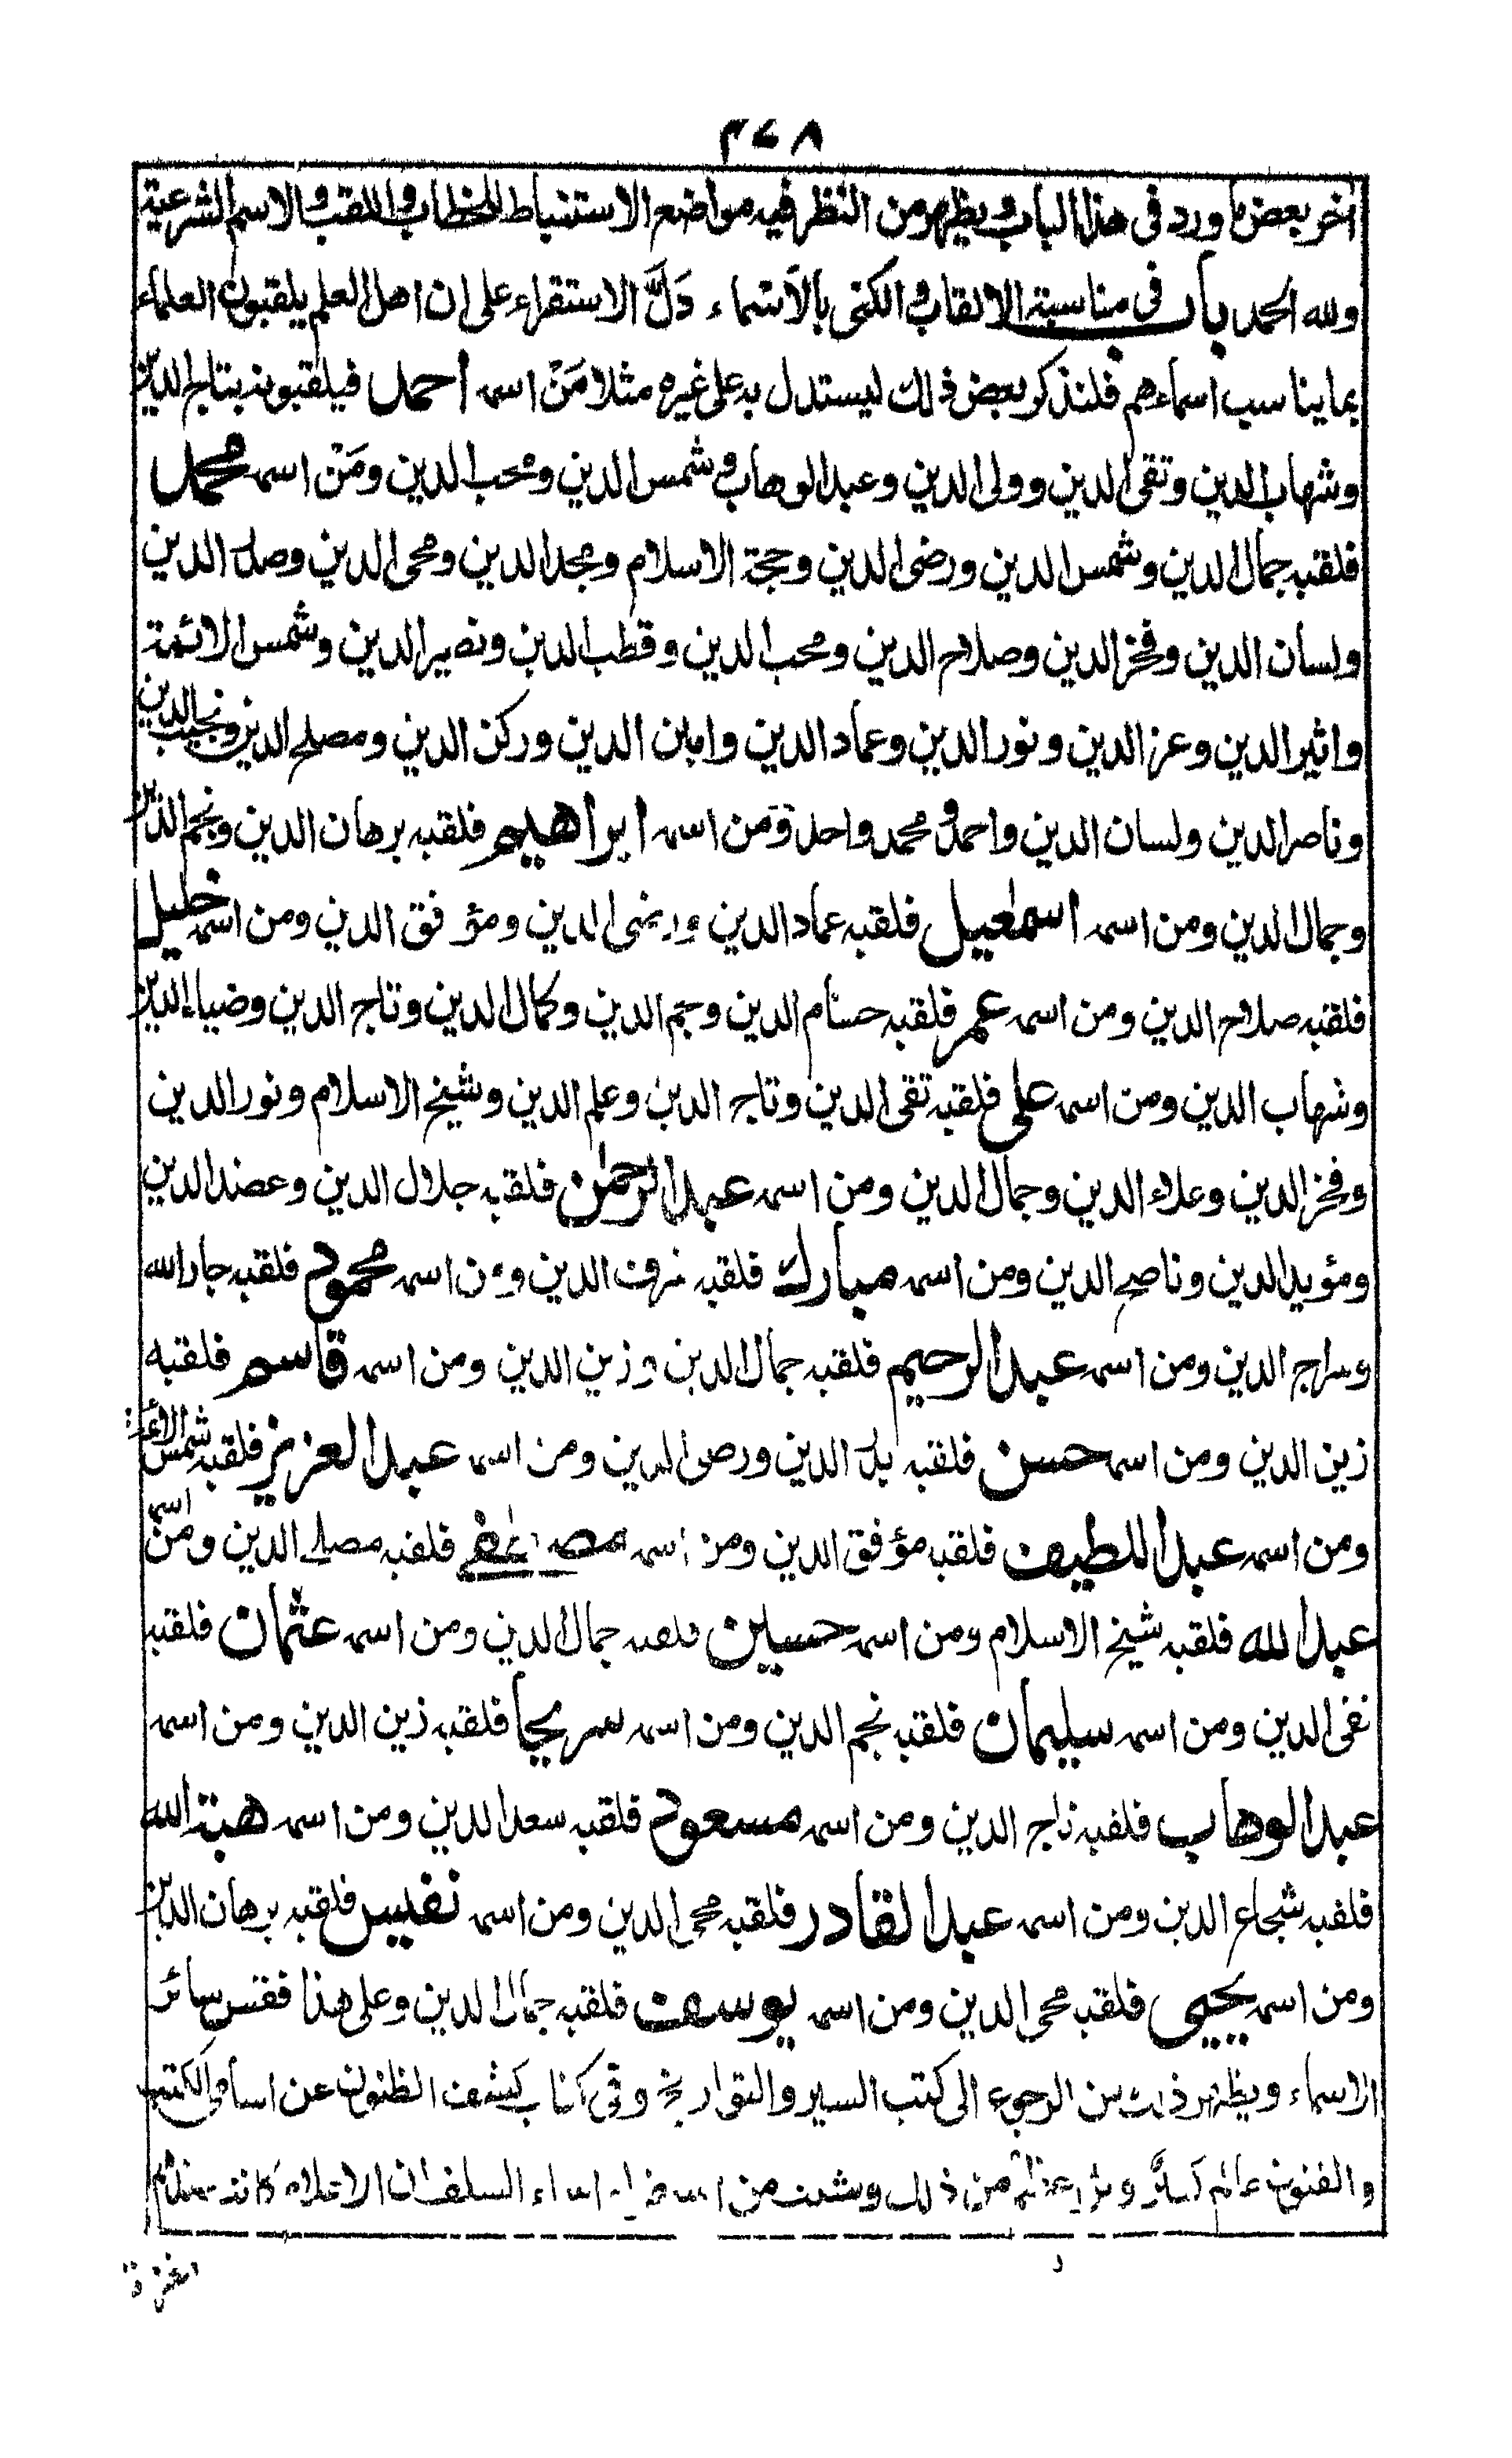 ٣٧٨
اٰخر بعض ما ورد فى هذا الباب ويظهر من النظر فيه مواضع الاستنباط للخطاب واللقب والاسم الشرعية
ولله الحمد باب فى مناسبة الالقاب والكنى بالاسماء دَلَّ الاستقراء على ان اهل العلم يلقبون العلماء
بما يناسب اسماءهم فلنذكر بعض ذلك ليستدل به على غيره مثلا مَنْ اسمه احمد فيلقبونه بتاج الدين
وشهاب الدين وتقى الدين وولى الدين وعبد الوهاب وشمس الدين ومحب الدين ومَنْ اسمه محمد
فلقبه جمال الدين وشمس الدين ورضى الدين وحجة الاسلام ومجد الدين ومحى الدين وصدر الدين
ولسان الدين وفخر الدين وصلاح الدين ومحب الدين وقطب الدين ونصير الدين وشمس الائمة
واثير الدين وعز الدين ونور الدين وعماد الدين وامين الدين وركن الدين ومصلح الدين ونجيب الدين
وناصر الدين ولسان الدين واحمد ومحمد واحد ومن اسمه ابراهيم فلقبه برهان الدين ونجم الدين
وجمال الدين ومن اسمه اسمعيل فلقبه عماد الدين ورضى الدين ومؤفق الدين ومن اسمه خليل
فلقبه صلاح الدين ومن اسمه عمر فلقبه حسام الدين ونجم الدين وكمال الدين وتاج الدين وضياء الدين
وشهاب الدين ومن اسمه على فلقبه تقى الدين وتاج الدين وعلم الدين وشيخ الاسلام ونور الدين
وفخر الدين وعلاء الدين وجمال الدين ومن اسمه عبد الرحمٰن فلقبه جلال الدين وعضد الدين
ومؤيد الدين وناصح الدين ومن اسمه مبارك فلقبه شرف الدين ومن اسمه محمود فلقبه جار الله
وسراج الدين ومن اسمه عبد الرحيم فلقبه جمال الدين وزين الدين ومن اسمه قاسم فلقبه
زين الدين ومن اسمه حسن فلقبه بدر الدين ورضى الدين ومن اسمه عبد العزيز فلقبه شمس الائمة
ومن اسمه عبد اللطيف فلقبه مؤفق الدين ومن اسمه مصطفى فلقبه مصلح الدين ومن اسمه
عبد الله فلقبه شيخ الاسلام ومن اسمه حسين فلقبه جمال الدين ومن اسمه عثمان فلقبه
تقى الدين ومن اسمه سليمان فلقبه نجم الدين ومن اسمه سريجا فلقبه زين الدين ومن اسمه
عبد الوهاب فلقبه تاج الدين ومن اسمه مسعود فلقبه سعد الدين ومن اسمه هبة الله
فلقبه شجاع الدين ومن اسمه عبد القادر فلقبه محى الدين ومن اسمه نفيس فلقبه برهان الدين
ومن اسمه يحيى فلقبه محى الدين ومن اسمه يوسف فلقبه جمال الدين وعلى هذا فقس سائر
الاسماء ويظهر ذلك من الرجوع الى كتب السير والتواريخ وفى كتاب كشف الظنون عن اسامى الكتب
والفنون من ذلك وشئت من السلطان الاعلام